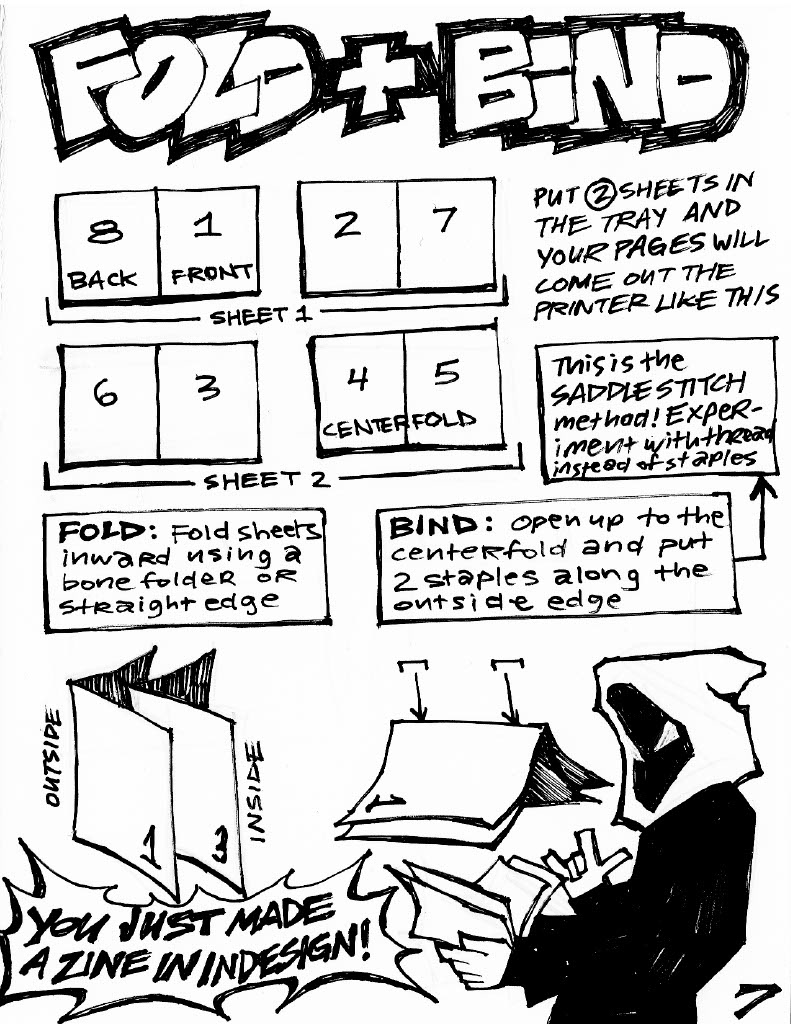 FOLD + BIND
8 1 2 7
BACK FRONT
SHEET 1
PUT 2 SHEETS IN
THE TRAY AND
YOUR PAGES WILL
COME OUT THE
PRINTER LIKE THIS
6 3 4 5
CENTERFOLD
SHEET 2
This is the
SADDLE STITCH
method! EXPER-
iment with thread
instead of staples
FOLD: Fold sheets
inward using a
bone folder OR
straight edge
BIND: open up to the
centerfold and put
2 staples along the
outside edge
OUTSIDE
1
3
INSIDE
1
YOU JUST MADE
A ZINE IN INDESIGN!
7